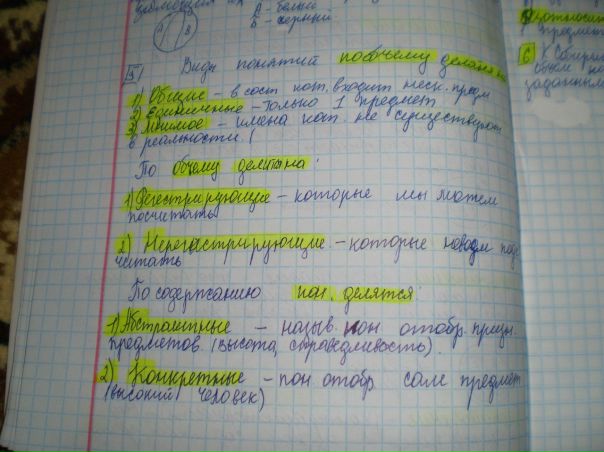 А - белый
Б - черный
А В
5) Виды понятий по объему делятся на
1) Общие - в сост кот. входит неск. предм
2) Единичные - только 1 предмет
3) Мнимое - имена кот. не существуют
в реальности.
По объему делятся на:
1) Регестрирующие - которые мы можем
посчитать
2) Нерегестрирующие - которые невозм подс
читать
По содержанию пон. делятся:
1) Абстрактные - назыв. пон отобр. призн.
предметов. (высота, справедливость).
2) Конкретные - пон. отобр. сами предмет
(высокий человек)
предмет
6
заданным